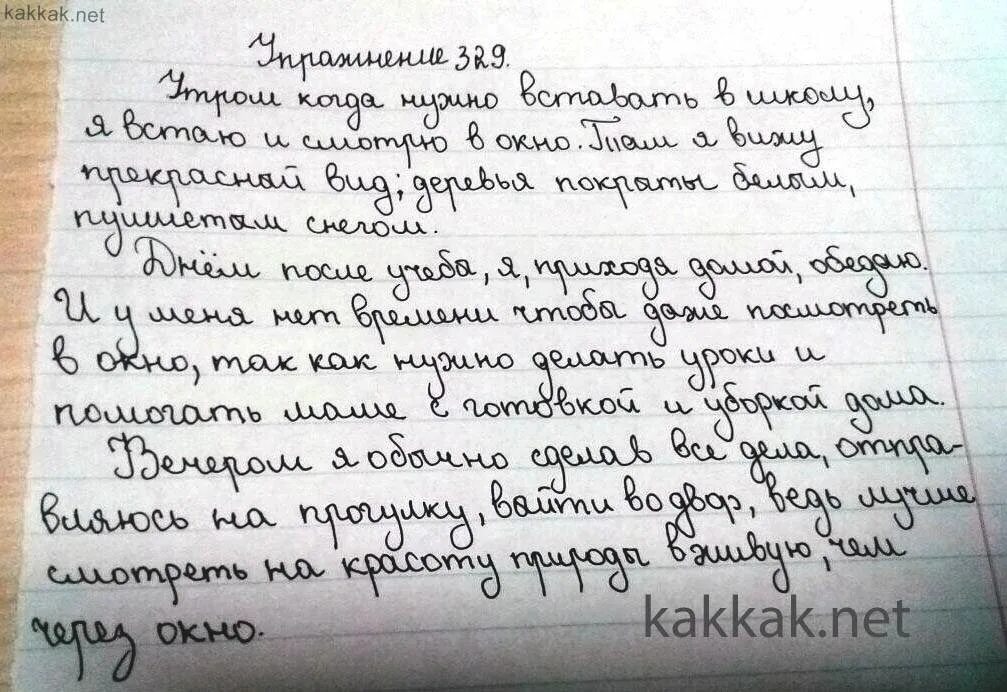 kakkak.net
Упражнение 329.
Утром когда нужно вставать в школу,
я встаю и смотрю в окно. Там я вижу
прекрасный вид; деревья покрыты белым,
пушистым снегом.
Днём после учебы, я, приходя домой, обедаю.
И у меня нет времени чтобы даже посмотреть
в окно, так как нужно делать уроки и
помогать маме с готовкой и уборкой дома.
Вечером я обычно сделав все дела, отпра-
вляюсь на прогулку, выйти во двор, ведь лучше
смотреть на красоту природы вживую, чем
через окно.
kakkak.net